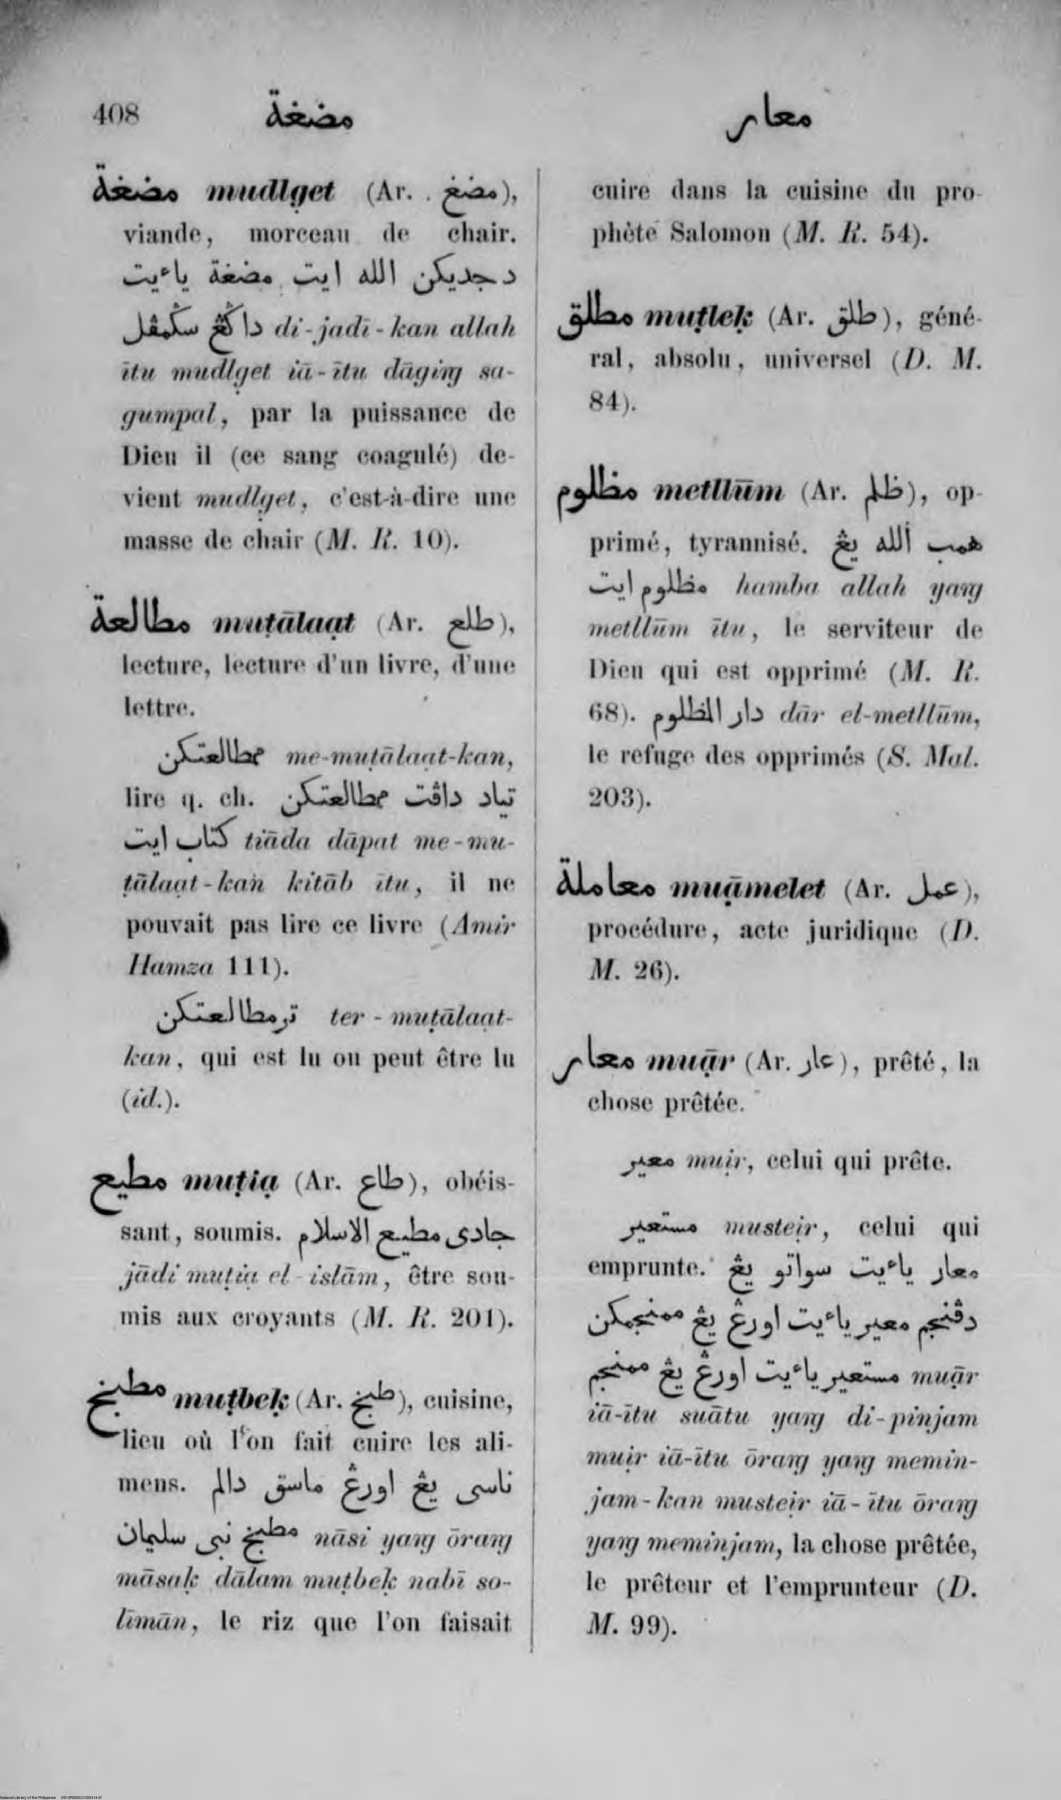 408 مضغة معار
مضغة mudlg̣et (Ar. مضغ),
viande, morceau de chair.
دجديكن الله ايت مضغة ياءيت
داݢڠ سݢمڤل di-jadī-kan allah
ītu mudlg̣et iā-ītu dāgiṅg sa-
gumpal, par la puissance de
Dieu il (ce sang coagulé) de-
vient mudlg̣et, c'est-à-dire une
masse de chair (M. R. 10).
مطالعة muṭālaạt (Ar. طلع),
lecture, lecture d'un livre, d'une
lettre.
ممطالعتكن me-muṭālaạt-kan,
lire q. ch. تياد داڤت ممطالعتكن
كتاب ايت tiāda dāpat me-mu-
ṭālaạt-kan kitāb ītu, il ne
pouvait pas lire ce livre (Amir
Hamza 111).
ترمطالعتكن ter-muṭālaạt-
kan, qui est lu ou peut être lu
(id.).
مطيع muṭiạ (Ar. طاع), obéis-
sant, soumis. جادى مطيع الاسلام
jādi muṭiạ el-islām, être sou-
mis aux croyants (M. R. 201).
مطبخ muṭbeḳ (Ar. طبخ), cuisine,
lieu où l'on fait cuire les ali-
mens. ناسى يڠ اورڠ ماسق دالم
مطبخ نبى سليمان nāsi yaṅg ōraṅg
māsaḳ dālam muṭbeḳ nabī so-
līmān, le riz que l'on faisait
cuire dans la cuisine du pro-
phète Salomon (M. R. 54).
مطلق muṭleḳ (Ar. طلق), géné-
ral, absolu, universel (D. M.
84).
مظلوم metllūm (Ar. ظلم), op-
primé, tyrannisé. همب الله يڠ
مظلوم ايت hamba allah yaṅg
metllūm ītu, le serviteur de
Dieu qui est opprimé (M. R.
68). دار المظلوم dār el-metllūm,
le refuge des opprimés (S. Mal.
203).
معاملة muạ̄melet (Ar. عمل),
procédure, acte juridique (D.
M. 26).
معار muạ̄r (Ar. عار), prêté, la
chose prêtée.
معير muịr, celui qui prête.
مستعير musteịr, celui qui
emprunte. معار ياءيت سواتو يڠ
دڤنجم معير ياءيت اورڠ يڠ ممنجمكن
مستعير ياءيت اورڠ يڠ ممنجم muạ̄r
iā-ītu suātu yaṅg di-pinjam
muịr iā-ītu ōraṅg yaṅg memin-
jam-kan musteịr iā-ītu ōraṅg
yaṅg meminjam, la chose prêtée,
le prêteur et l'emprunteur (D.
M. 99).